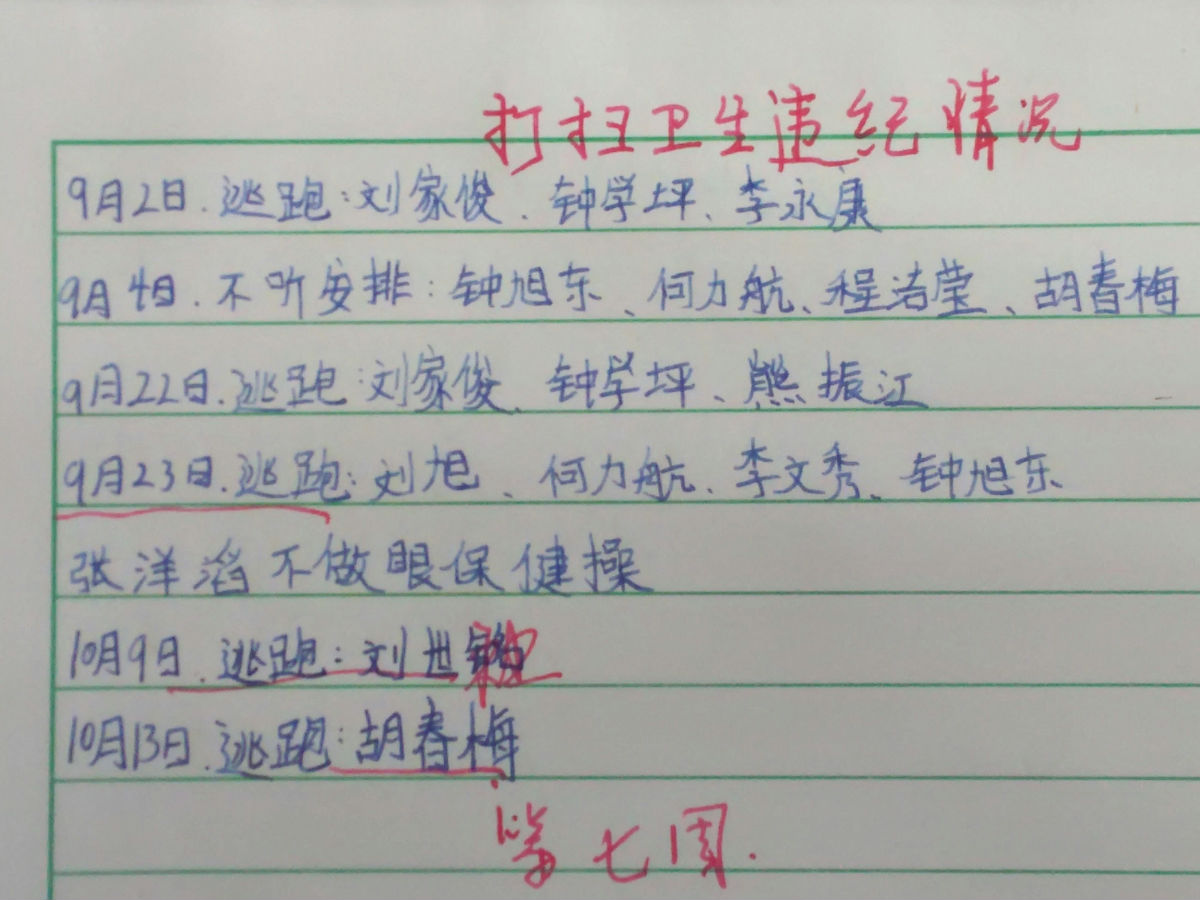 打扫卫生违纪情况
9月2日.逃跑:刘家俊、钟学坪、李永康
9月4日.不听安排:钟旭东、何力航、程洁莹、胡春梅
9月22日.逃跑:刘家俊、钟学坪、熊振江
9月23日.逃跑:刘旭、何力航、李文秀、钟旭东
张洋滔不做眼保健操
10月9日.逃跑:刘世
10月13日.逃跑:胡春梅
第七周.